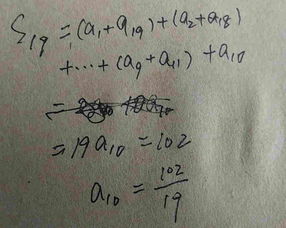 S₁₉ = (a₁ + a₁₉) + (a₂ + a₁₈)
+ ⋯ + (a₉ + a₁₁) + a₁₀
=
= 19a₁₀ = 102
a₁₀ = 102/19